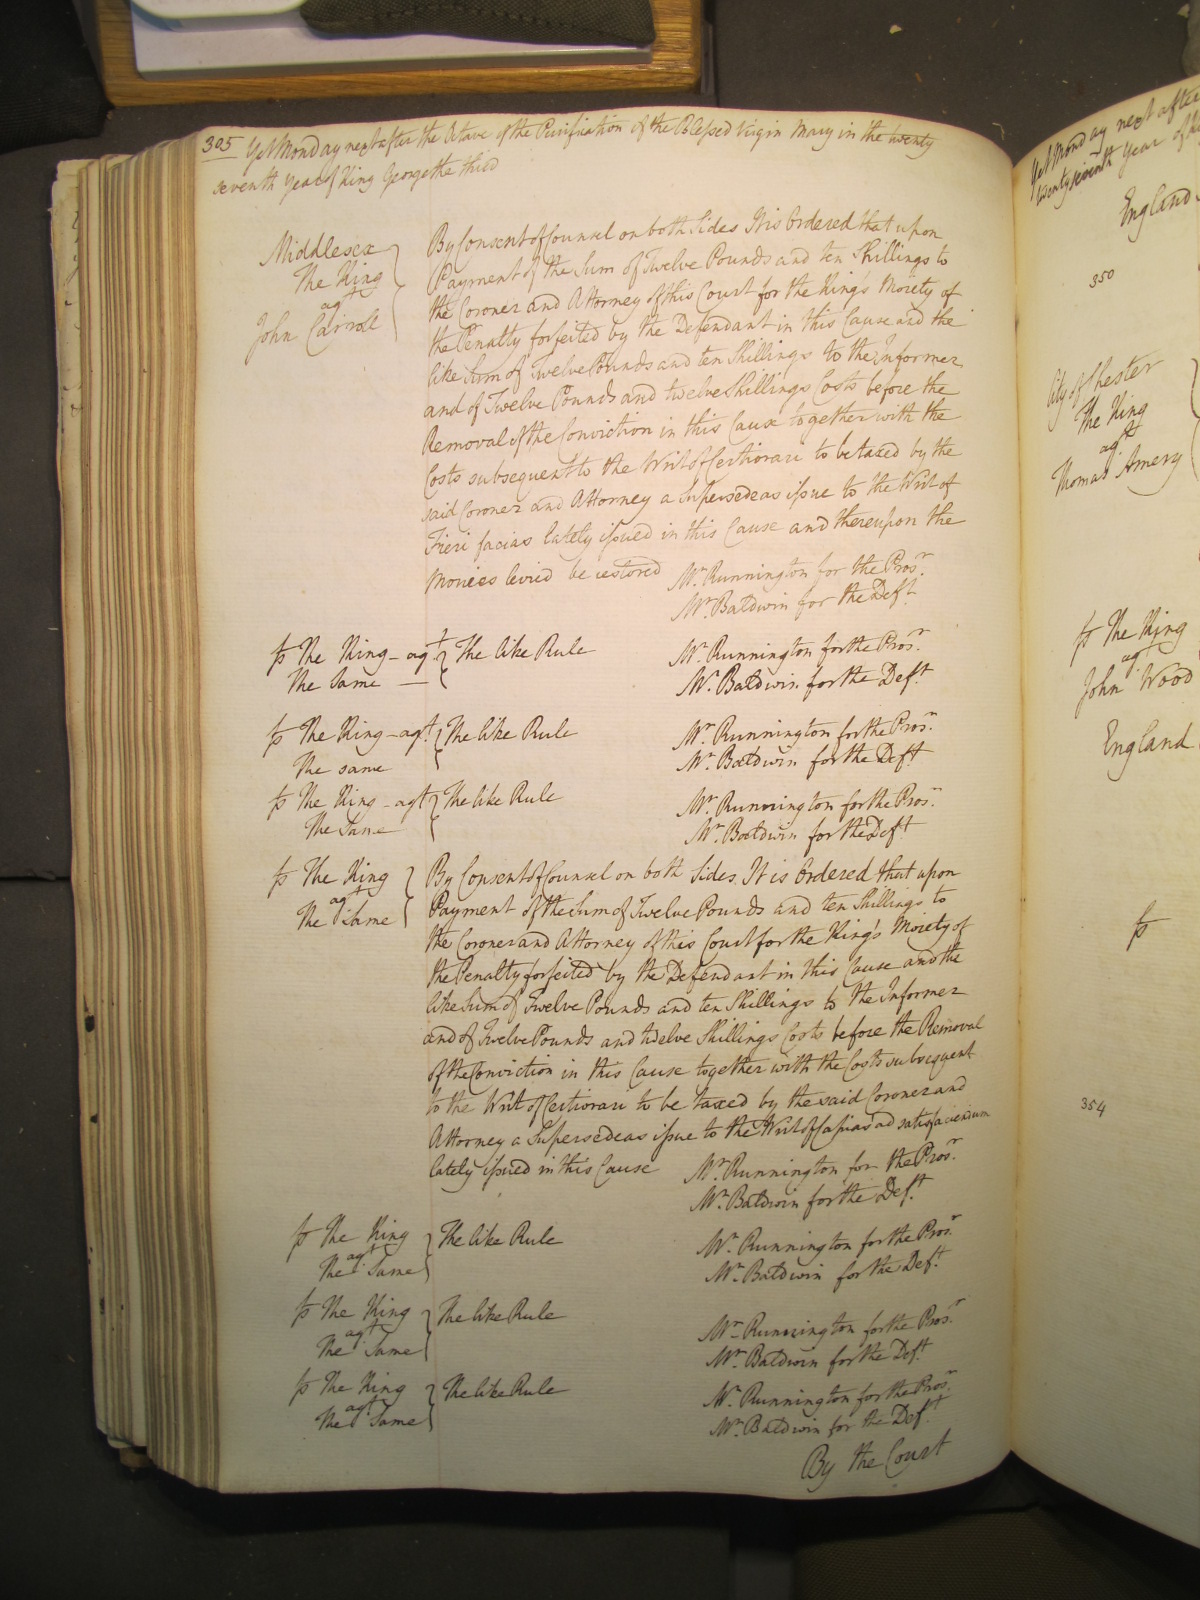 305 Yet Monday next after the Octave of the Purification of the Blessed Virgin Mary in the twenty
seventh Year of King George the third
Middlesex
The King
agt
John Carroll
By Consent of Counsel on both Sides It is Ordered that upon
Payment of the Sum of Twelve Pounds and ten Shillings to
the Coroner and Attorney of this Court for the King's Moiety of
the Penalty forfeited by the Defendant in this Cause and the
like Sum of Twelve Pounds and ten Shillings to the Informer
and of Twelve Pounds and twelve Shillings Costs before the
Removal of the Conviction in this Cause together with the
Costs subsequent to the Writ of Certiorari to be taxed by the
said Coroner and Attorney a Supersedeas issue to the Writ of
Fieri facias lately issued in this Cause and thereupon the
Monies levied be restored Mr. Runnington for the Prosr.
Mr. Baldwin for the Deft.
The King - agt
The Same
The like Rule
Mr. Runnington for the Prosr.
Mr. Baldwin for the Deft.
The King - agt.
The same
The like Rule
Mr. Runnington for the Prosr.
Mr. Baldwin for the Deft
The King - agt
The Same
The like Rule
Mr. Runnington for the Prosr.
Mr. Baldwin for the Deft
The King
agt
The Same
By Consent of Counsel on both Sides. It is Ordered that upon
Payment of the Sum of Twelve Pounds and ten Shillings to
the Coroner and Attorney of this Court for the King's Moiety of
the Penalty forfeited by the Defendant in this Cause and the
like Sum of Twelve Pounds and ten Shillings to the Informer
and of Twelve Pounds and twelve Shillings Costs before the Removal
of the Conviction in this Cause together with the Costs subsequent
to the Writ of Certiorari to be taxed by the said Coroner and
Attorney a Supersedeas issue to the Writ of Capias ad satisfaciendum
lately issued in this Cause Mr. Runnington for the Prosr.
Mr. Baldwin for the Deft.
The King
agt
The Same
The like Rule
Mr. Runnington for the Prosr.
Mr. Baldwin for the Deft.
The King
agt
The Same
The like Rule
Mr. Runnington for the Prosr.
Mr. Baldwin for the Deft.
The King
agt
The Same
The like Rule
Mr. Runnington for the Prosr.
Mr. Baldwin for the Deft.
By the Court
Yet Monday next after
twenty seventh Year of
England
350
City of Chester
The King
agt
Thomas Amery
The King
agt
John Wood
England
354